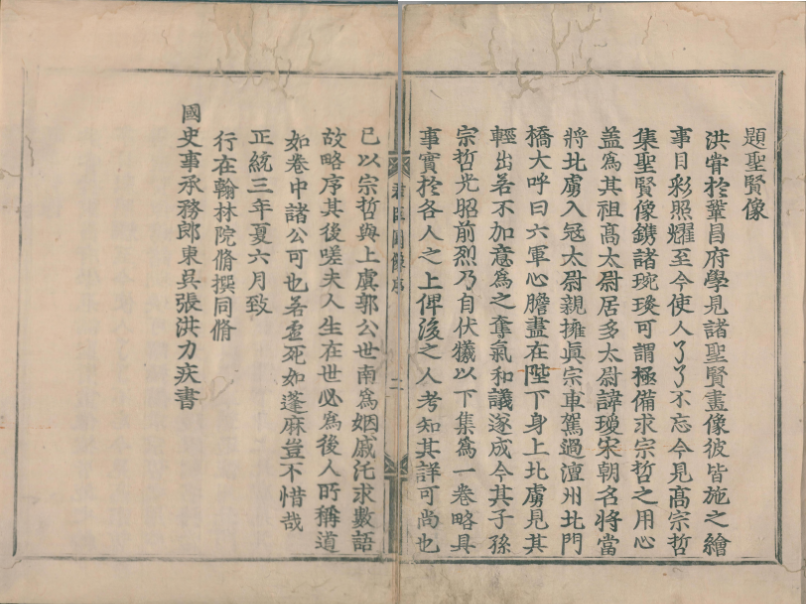 題聖賢像
洪甞於鞏昌府學見諸聖賢畫像彼皆施之繪
事目彩照耀至今使人了了不忘今見高宗哲
集聖賢像鐫諸琬琰可謂極備求宗哲之用心
盖為其祖高太尉居多太尉諱瓊宋朝名將當
將北虜入冦太尉親擁真宗車駕過澶州北門
橋大呼曰六軍心膽盡在陛下身上北虜見其
輕出若不加意為之奪氣和議遂成今其子孫
宗哲光昭前烈乃自伏犧以下集為一卷略具
事實於各人之上俾後之人考知其詳可尚也
二
已以宗哲與上虞郭公世南為姻戚託求數語
故略序其後嗟夫人生在世必為後人所稱道
如卷中諸公可也若虛死如蓬麻豈不惜哉
正統三年夏六月致
行在翰林院脩撰同脩
國史事承務郎東吳張洪力疾書